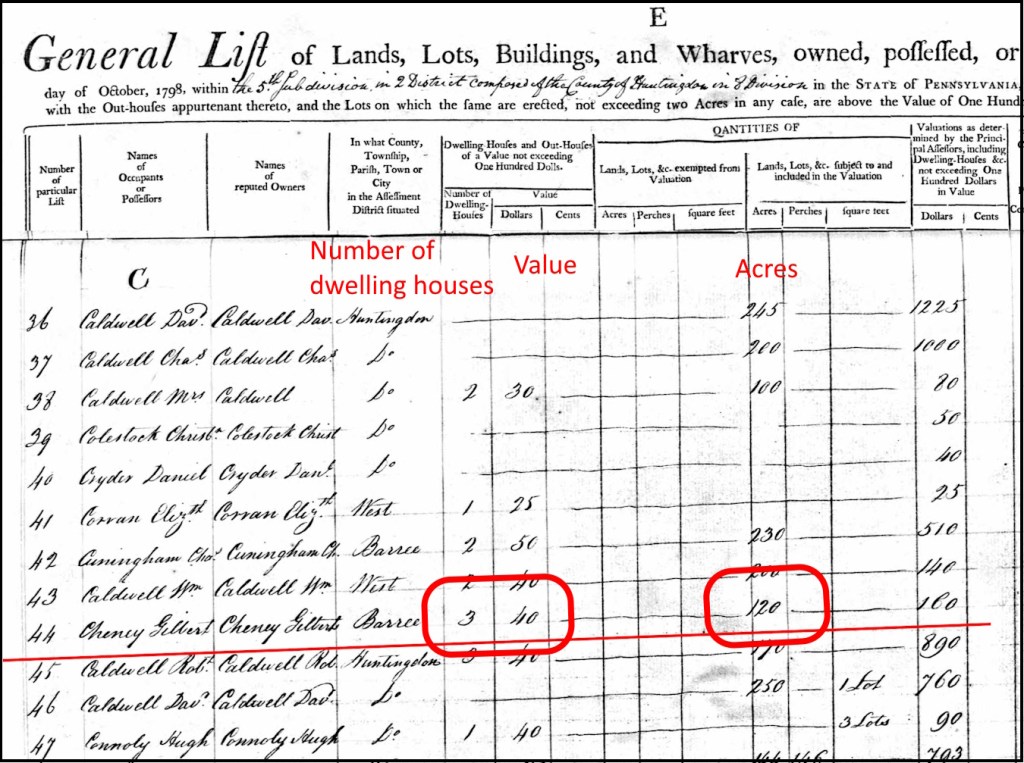 E
General Liſt of Lands, Lots, Buildings, and Wharves, owned, poſſeſſed, or
day of October, 1798, within the 5th Subdivision in 2 District composed of the County of Huntingdon in 8 Division in the STATE of PENNSYLVANIA,
with the Out-houſes appurtenant thereto, and the Lots on which the ſame are erected, not exceeding two Acres in any caſe, are above the Value of One Hund
Number of particular Liſt
Names of Occupants or Poſſeſſors
Names of reputed Owners
In what County, Townſhip, Pariſh, Town or City in the Aſſeſſment Diſtrict ſituated
Dwelling-Houſes and Out-Houſes of a Value not exceeding One Hundred Dolls.
Number of Dwelling-Houſes
Value
Dollars Cents
QANTITIES OF
Lands, Lots, &c. exempted from Valuation
Acres Perches ſquare feet
Lands, Lots, &c. ſubject to and included in the Valuation
Acres Perches ſquare feet
Valuations as determined by the Principal Aſſeſſors, including Dwelling-Houſes &c. not exceeding One Hundred Dollars in Value
Dollars Cents
Number of dwelling houses
Value
Acres
C
36 Caldwell Davd. Caldwell Dav. Huntingdon 245 1225
37 Caldwell Chas Caldwell Chas Do 200 1000
38 Caldwell Mrs Caldwell Do 2 30 100 80
39 Colestock Christr. Colestock Christ Do 50
40 Cryder Daniel Cryder Danl. Do 40
41 Corran Elizth Corran Elizth West 1 25 25
42 Cuningham Chas Cuningham Ch. Barree 2 50 230 510
43 Caldwell Wm Caldwell Wm West 2 40 200 140
44 Cheney Gilbert Cheney Gilbert Barree 3 40 120 160
45 Caldwell Robt. Caldwell Rob. Huntingdon 3 40 170 890
46 Caldwell Davd. Caldwell Davd. Do 250 1 Lot 760
47 Connoly Hugh Connoly Hugh Do 1 40 3 Lots 90
146 793